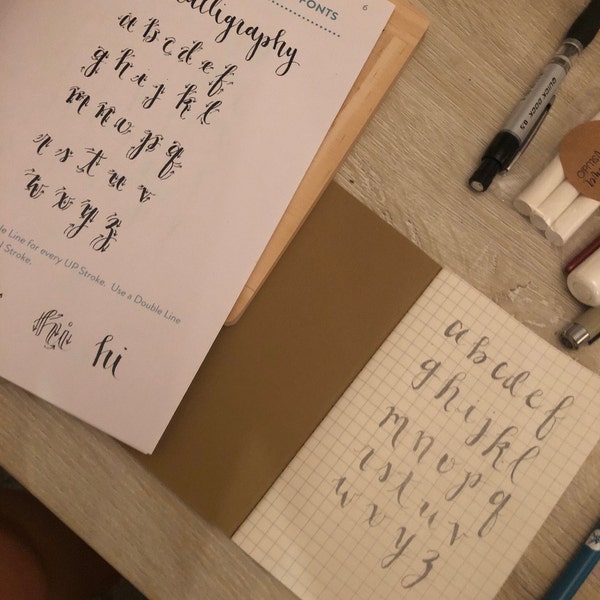 FONTS
6
alligraphy
a b c d e f
g h i j k l
m n o p q
r s t u v
w x y z
Line for every UP Stroke. Use a Double Line
Stroke.
hi
hi
a b c d e f
g h i j k l
m n o p q
r s t u v
w v y z
QUICK DOCK 0.5